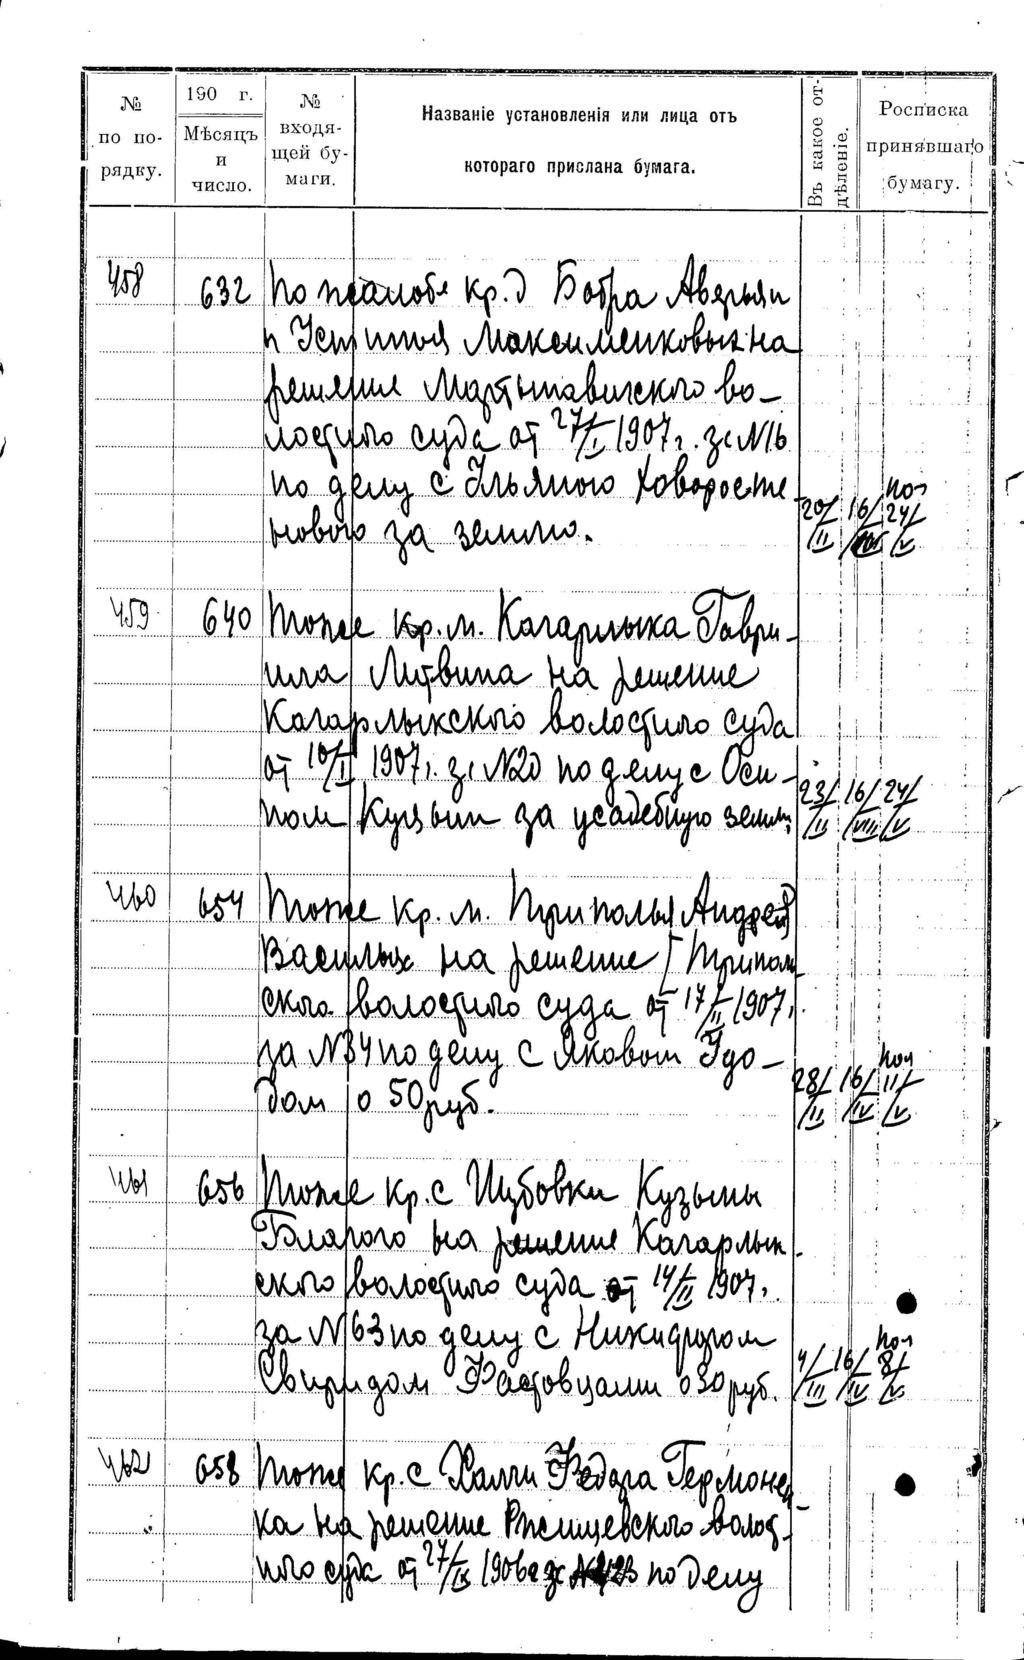 № по порядку.
190 г.
Мѣсяцъ и число.
№ входящей бумаги.
Названіе установленія или лица отъ
котораго прислана бумага.
Въ какое отдѣленіе.
Росписка принявшаго бумагу.
458 632 По жалобе кр. д Бобра Аверьян
и Устиния Максименковых на
решение Мартыновичского во-
лостного суда от 27/I 1907 г. за N16
по делу с Ульяною Ховоросте
новою за землю.
20/II 16/ 24/V
459 640 Тоже кр. м. Кагарлыка Гаври-
ила Литвина на решение
Кагарлыкского волостного суда
от 10/I 1907 г. за N20 по делу с Оси-
пом Куцыим за усадебную землю
23/II 16/VIII 24/V
460 654 Тоже кр. м. Триполья Андрея
Василых на решение Триполь
ского волостного суда от 17/II 1907 г
за N34 по делу с Яковом Удо-
дом о 50 руб.
28/II 16/IV 11/V
461 656 Тоже кр. с Шубовки Кузьмы
Благого на решение Кагарлык-
ского волостного суда от 14/II 1907 г.
за N63 по делу с Никифором
Свиридом Фастовцами о 30 руб.
4/III 16/IV 8/V
462 658 Тоже кр. с Халчи Федора Гермонен
ка на решение Ржищевского волост-
ного суда от 27/IX 1906 за по делу